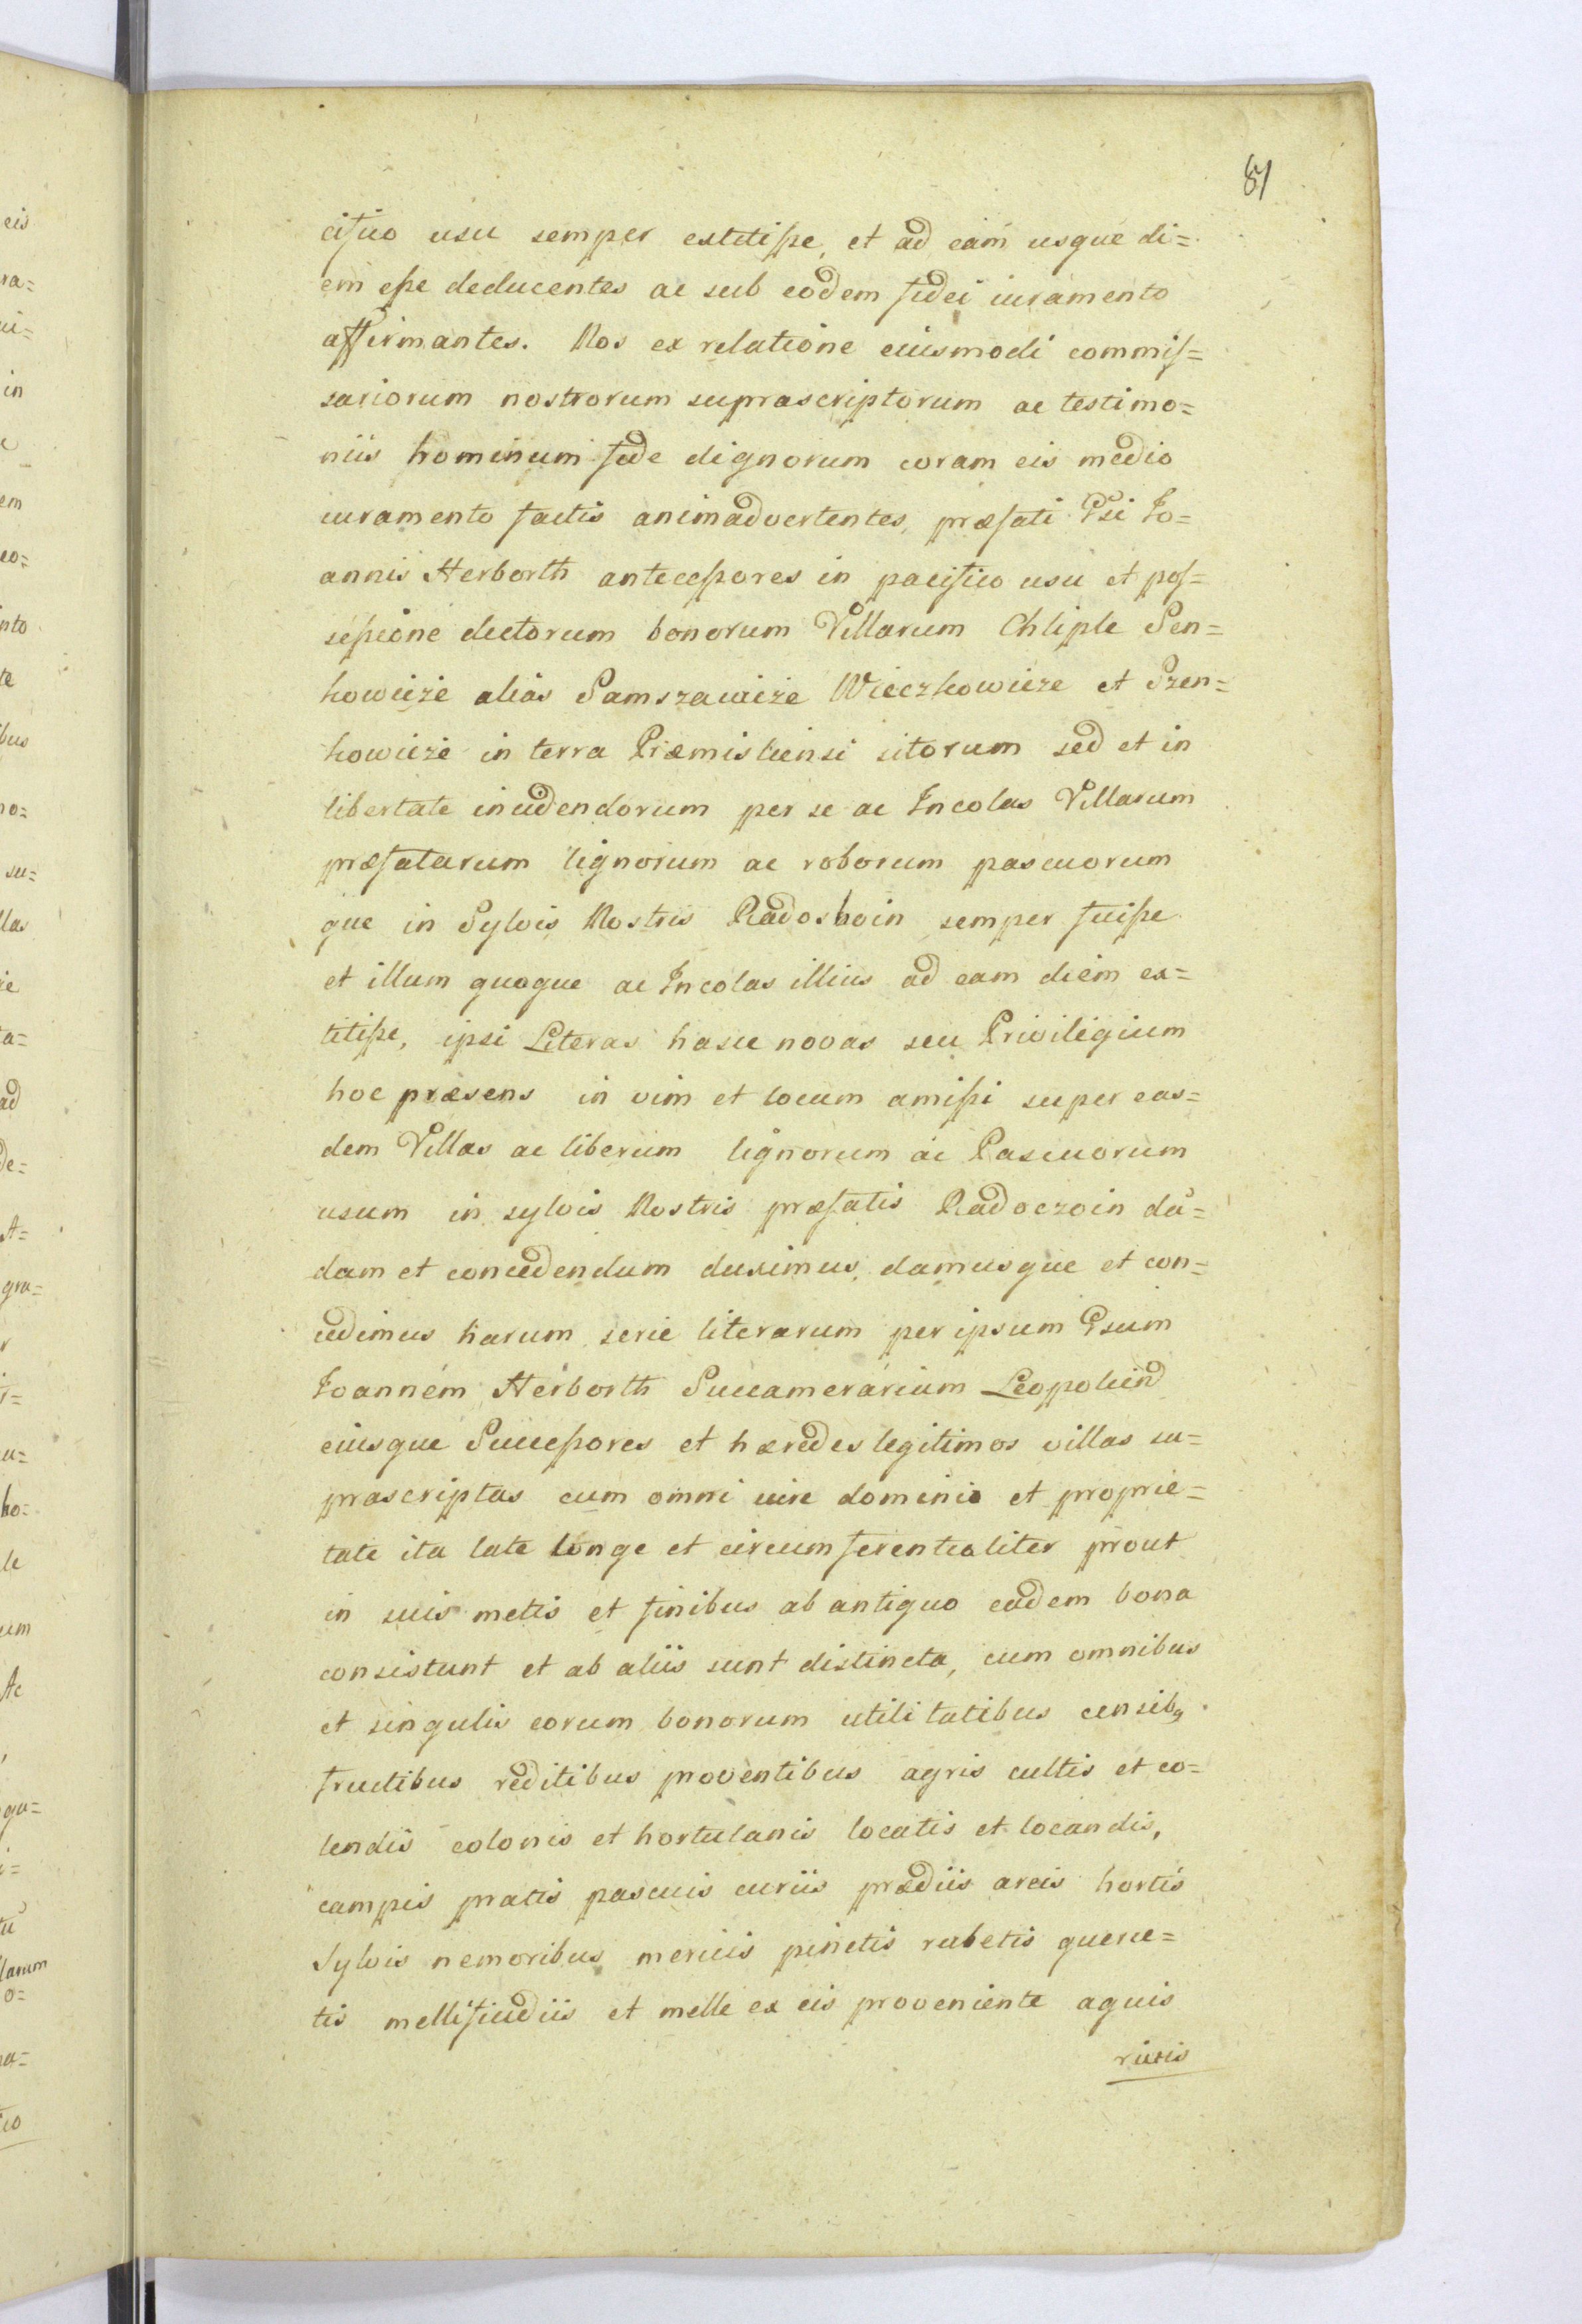 87
cifico usu semper extitisse, et ad eam usque di=
em esse deducentes ac sub eodem fidei iuramento
affirmantes. Nos ex relatione eiusmodi commis=
sariorum nostrorum suprascriptorum ac testimo=
niis hominum fide dignorum coram eis medio
iuramento factis animadvertentes, præfati Gsi Jo=
annis Herborth antecessores in pacifico usu et pos=
sessione dictorum bonorum Villarum Chliple Sen=
kowicze alias Samszawicze Wieczkowicze et Szen=
kowicze in terra Præmisliensi sitorum sed et in
libertate incidendorum per se ac Incolas Villarum
præfatarum lignorum ac roborum pascuorum
que in Sylvis Nostris Radoshoin semper fuisse
et illum quoque ac Incolas illius ad eam diem ex=
titisse, ipsi Literas hasce novas seu Privilegium
hoc præsens in vim et locum amissi super eas=
dem Villas ac liberum lignorum ac Pascuorum
usum in sylvis Nostris præfatis Radoczoin da=
dam et concedendum duximus, damusque et con=
cedimus harum serie literarum per ipsum Gsum
Joannem Herborth Succamerarium Leopolien
eiusque Successores et hæredes legitimos villas su=
prascriptas cum omni iure dominio et proprie=
tate ita late longe et circumferentialiter prout
in suis metis et finibus ab antiquo eadem bona
consistunt et ab aliis sunt distincta, cum omnibus
et singulis eorum bonorum utilitatibus censibq
fructibus reditibus proventibus agris cultis et co=
lendis colonis et hortulanis locatis et locandis,
campis pratis pascuis curiis prædiis areis hortis
Sylvis nemoribus mericis pinetis rubetis querce=
tis mellificiis et melle ex eis proveniente aquis
rivis